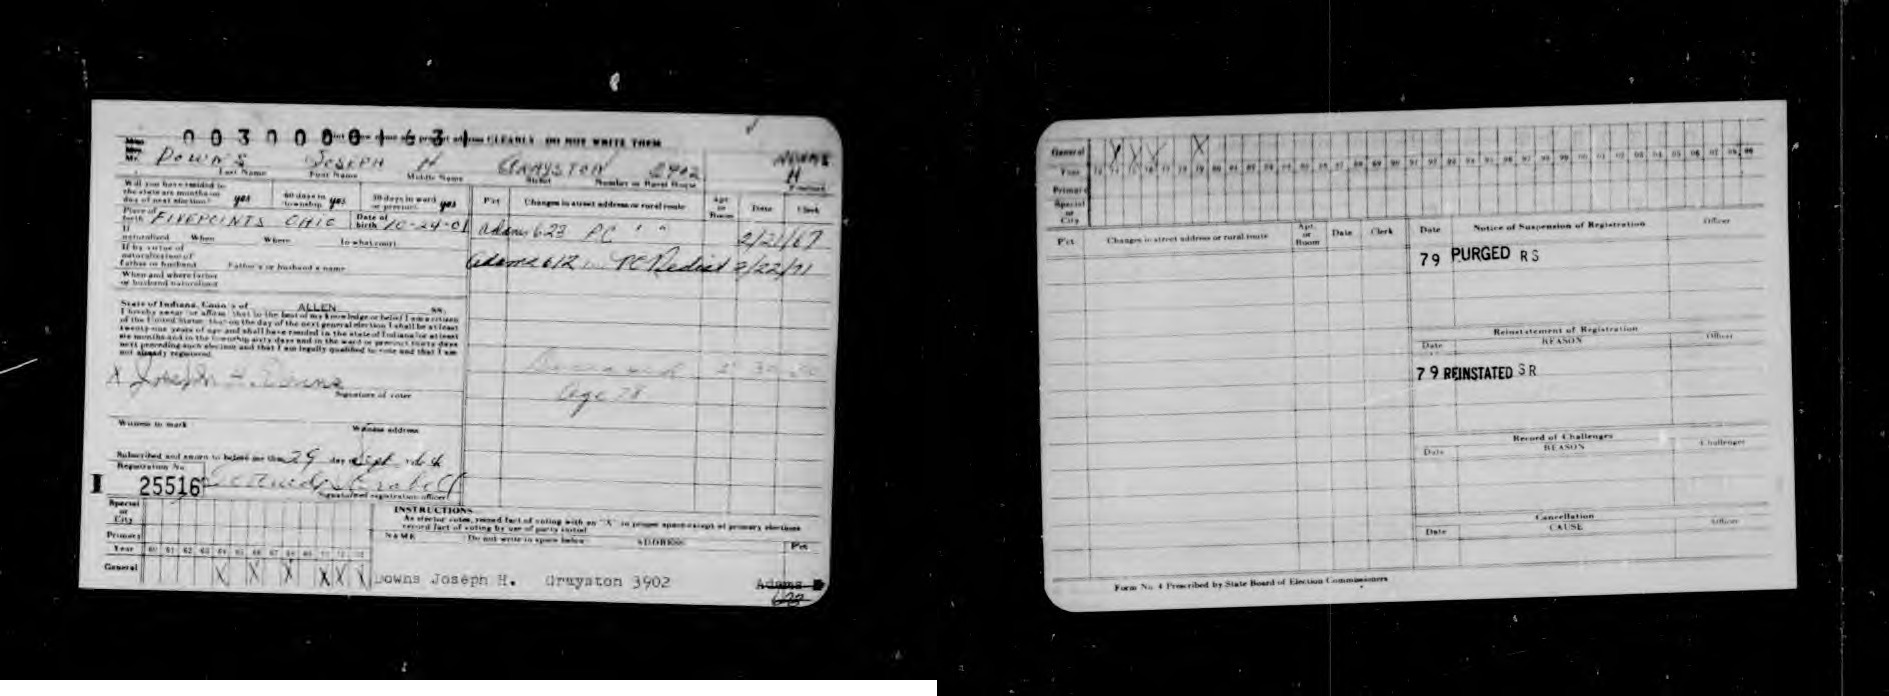 0030000163
CLEARLY DO NOT WRITE THEM
Mr. DOWNS JOSEPH H GRAYSTON 3902 ADAMS
Last Name First Name Middle Name Street Number or Rural Route H
Precinct
Will you have resided in the state six months on day of next election? yes 60 days in township yes 30 days in ward or precinct yes
P'ct Changes in street address or rural route Apt. or Room Date Clerk
Place of birth FIVEPOINTS OHIO Date of birth 10-24-01
Adams 623 PC " " 2/21/67
If naturalized When Where In what court
If by virtue of naturalization of father or husband Father's or husband's name
Adams 612 PC Redist 2/22/71
When and where father or husband naturalized
State of Indiana, County of ALLEN SS:
I hereby swear (or affirm) that to the best of my knowledge or belief I am a citizen
of the United States; that on the day of the next general election I shall be at least
twenty-one years of age and shall have resided in the state of Indiana for at least
six months and in the township sixty days and in the ward or precinct thirty days
next preceding such election and that I am legally qualified to vote and that I am
not already registered
X Joseph H. Downs
Signature of voter
Age 78
Witness to mark Witness address
Subscribed and sworn to before me this 29 day of Sept 1964
Registration No.
I 25516
Signature of registration officer
Special or City
Primary
Year 60 61 62 63 64 65 66 67 68 69 70 71 72
General X X X X X X
INSTRUCTIONS
As elector votes, record fact of voting with an "X" in proper space except at primary elections
record fact of voting by use of party initial
NAME Do not write in space below ADDRESS P'ct
Downs Joseph H. Grayston 3902 Adams
623
General X X X X
Year
Primary
Special or City
P'ct Changes in street address or rural route Apt. or Room Date Clerk
Date Notice of Suspension of Registration Officer
79 PURGED RS
Reinstatement of Registration
Date REASON Officer
79 REINSTATED SR
Record of Challenges
Date REASON Challenger
Cancellation
Date CAUSE Officer
Form No. 4 Prescribed by State Board of Election Commissioners